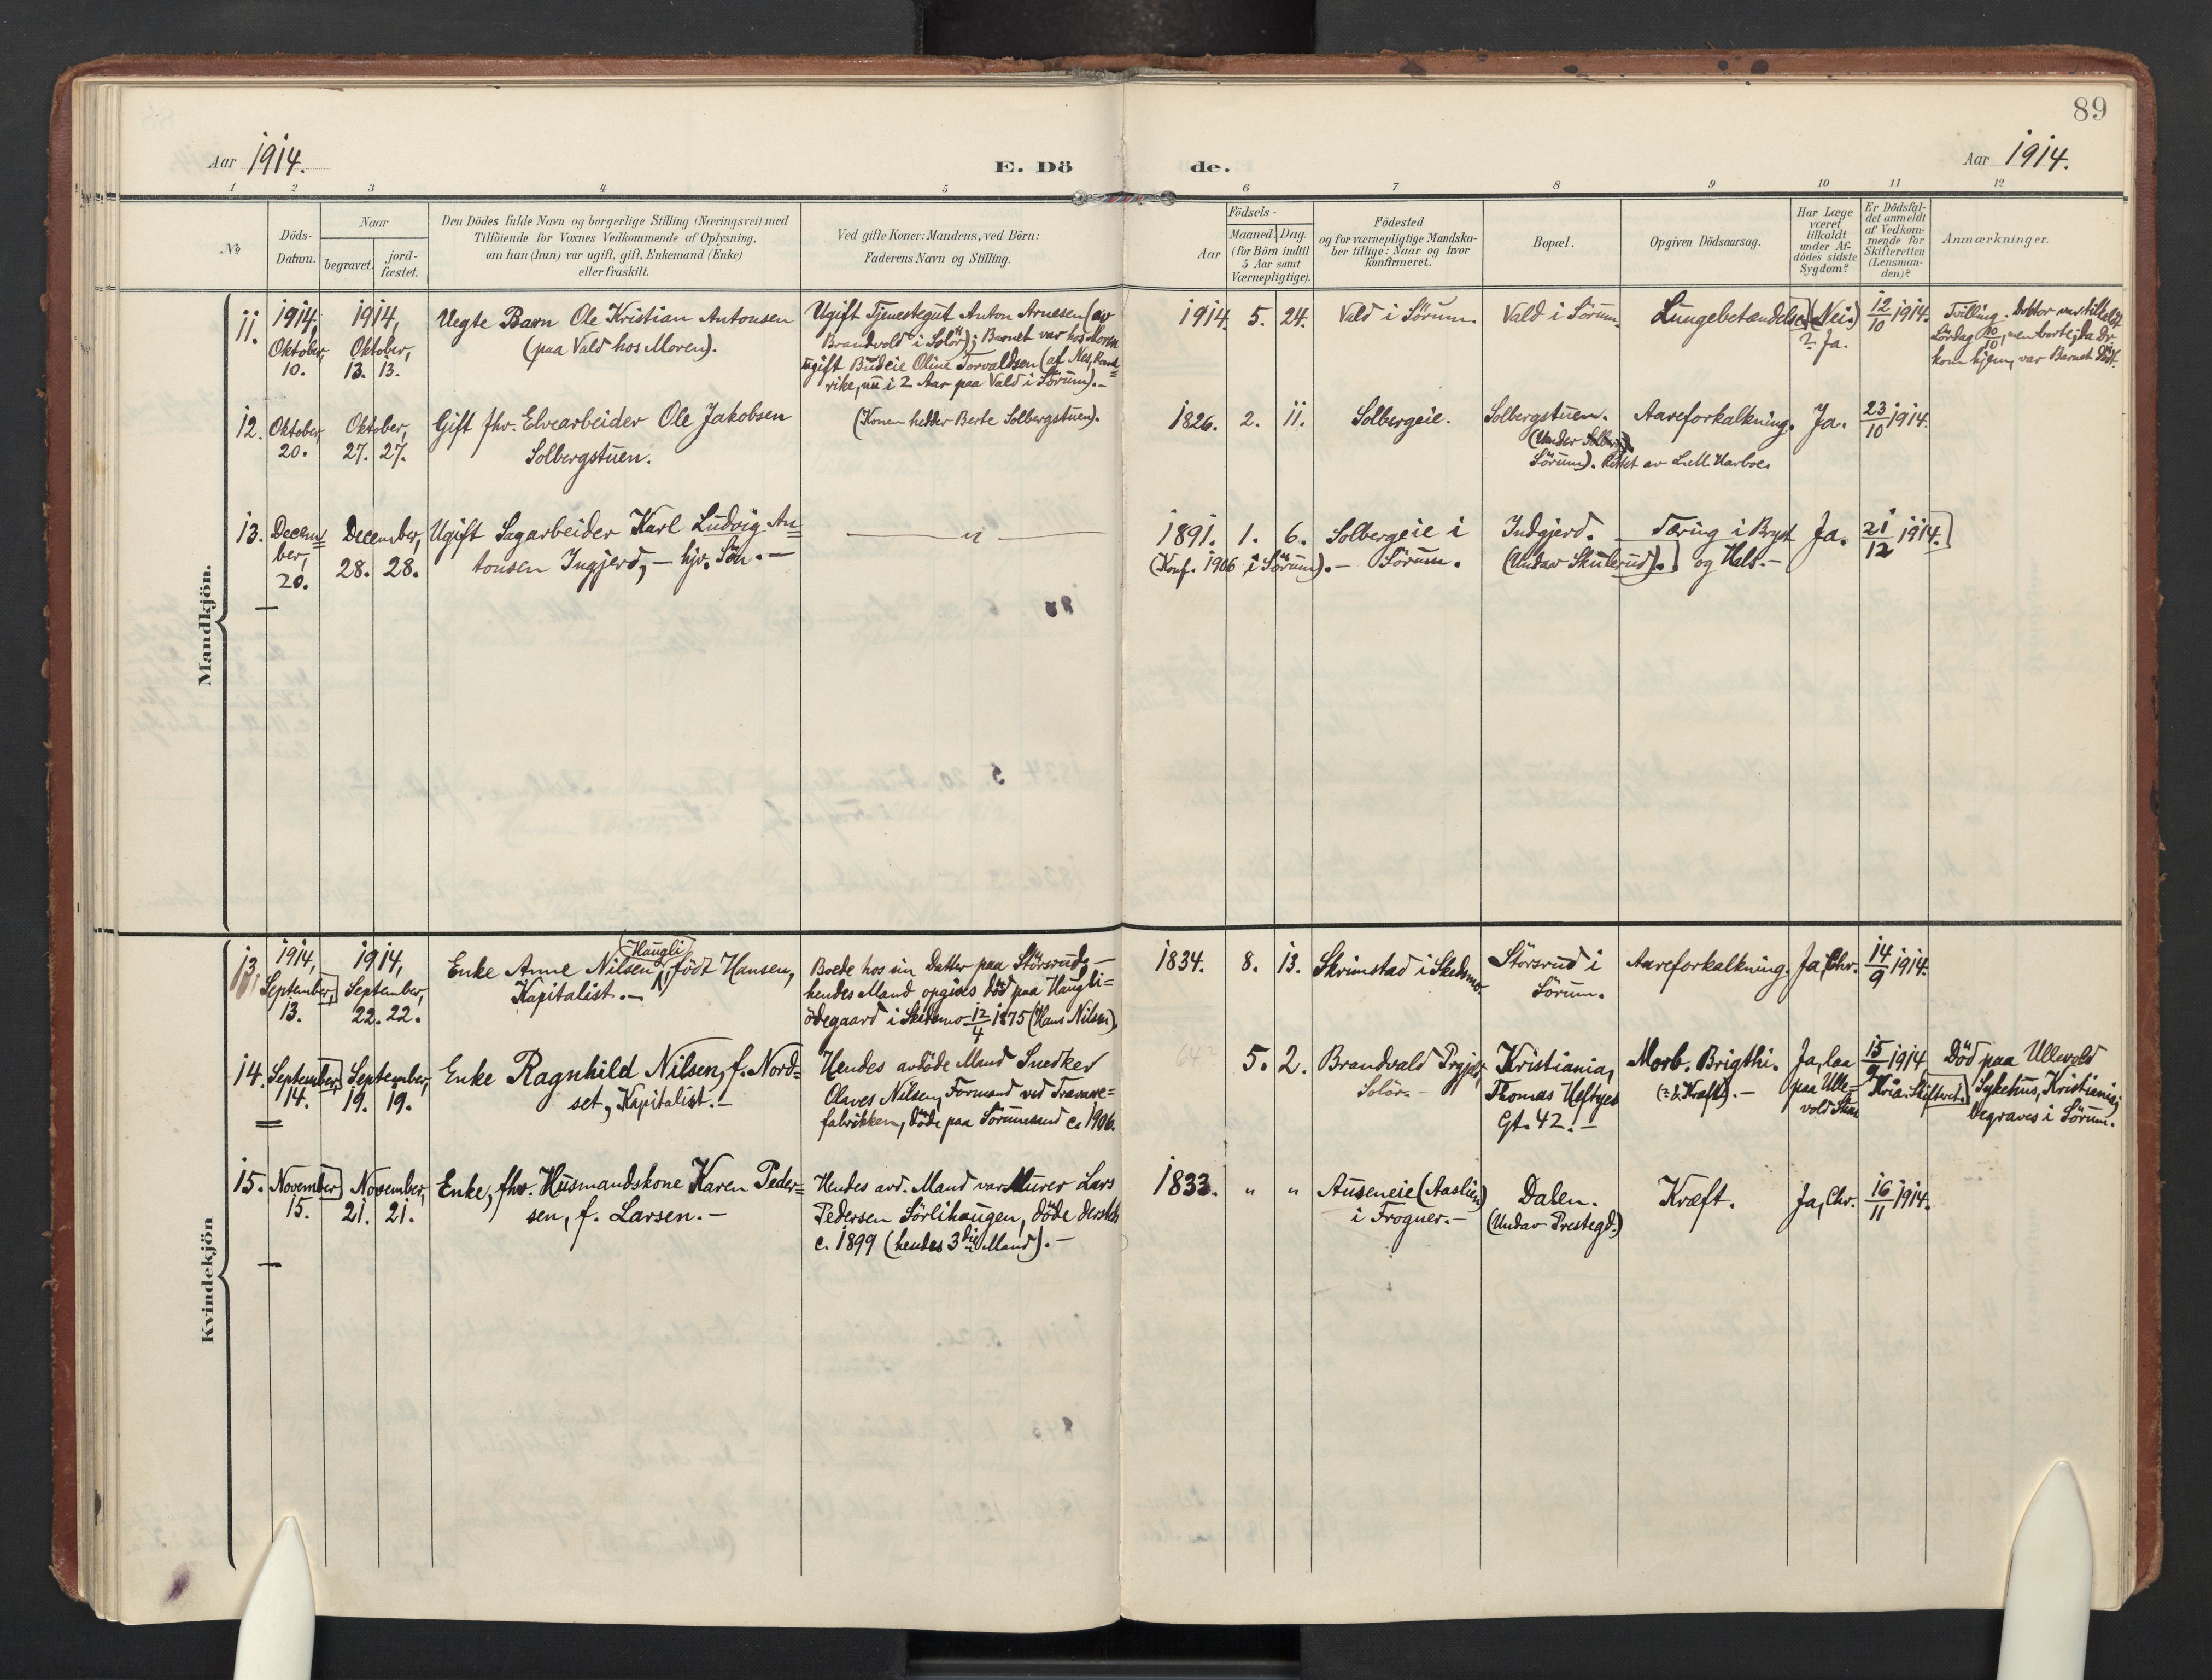 89
Aar 1914.
E. Dö
de.
Aar 1914.
1 2 3 4 5 6 7 8 9 10 11 12
No
Döds-
Datum.
Naar
begravet.
jord-
fæstet.
Den Dödes fulde Navn og borgerlige Stilling (Næringsvei) med
Tilföiende for Voxnes Vedkommende af Oplysning,
om han (hun) var ugift, gift, Enkemand (Enke)
eller fraskilt.
Ved gifte Koner: Mandens, ved Börn:
Faderens Navn og Stilling.
Födsels-
Aar
Maaned. Dag.
(for Börn indtil
5 Aar samt
Værnepligtige).
Födested
og for værnepligtige Mandska-
ber tillige: Naar og hvor
konfirmeret.
Bopæl.
Opgiven Dödsaarsag.
Har Læge
været
tilkaldt
under Af-
dödes sidste
Sygdom?
Er Dödsfal-
det anmeldt
af Vedkom-
mende for
Skifteretten
(Lensman-
den)?
Anmærkninger.
Mandkjön.
11.
1914,
Oktober,
10.
1914,
Oktober,
13. 13.
Uegte Barn Ole Kristian Antonsen
(paa Vald hos Moren).
Ugift Tjenestegut Anton Arnesen (av
Brandvold i Solör); Barnet var hos Moren
ugift Budeie Oline Torvaldsen (af Nes, Rome=
rike, nu i 2 Aar paa Vald i Sörum).-
1914. 5. 24.
Vald i Sörum.
Vald i Sörum.
Lungebetændelse.
(Nei.)
? Ja.
12/10 1914.
Tvilling. Doktor var tilkaldt
Lördag 10/10, men borte; da Dr.
kom hjem, var Barnet dödt.
12.
Oktober,
20.
Oktober,
27. 27.
Gift fhv. Elvearbeider Ole Jakobsen
Solbergstuen.
(Konen hedder Berte Solbergstuen).
1826. 2. 11.
Solbergeie.
Solbergstuen.
(Under Solberg
Sörum). Rettet av L. M. Harboe.
Aareforkalkning.
Ja.
23/10 1914.
13.
Decem=
ber,
20.
December,
28. 28.
Ugift Sagarbeider Karl Ludvig An=
tonsen Ingjerd, - hjv. Sön. -
— " —
1891. 1. 6.
(Konf. 1906 i Sörum). -
Solbergeie i
Sörum.
Indgjerd.
(Undav Skulerud).
Tæring i Bryst
og Hals. -
Ja.
21/12 1914.
Kvindekjön
13.
1914,
September,
13.
1914,
September,
22. 22.
Haugli
Enke Anne Nilsen, födt Hansen,
Kapitalist. -
Boede hos sin Datter paa Störsrud, -
hendes Mand opgives död paa Haugli=
ödegaard i Skedsmo 12/4 1875 (Hans Nilsen).
1834. 8. 13.
Skrimstad i Skedsmo.
Störsrud i
Sörum.
Aareforkalkning.
Ja, Chr.
14/9 1914.
14.
September,
14.
September,
19. 19.
Enke Ragnhild Nilsen, f. Nord=
set, Kapitalist. -
Hendes avdöde Mand Snedker
Olaves Nilsen, Formand ved Trævare=
fabrikken, döde paa Sörumsand c. 1906.
5. 2.
Brandvald Prgjeld,
Solör. -
Kristiania,
Thomas Heftyes
Gt. 42. -
Morb. Brigthi.
(: Kræft). -
Ja, laa
paa Ulle=
vold Skhus
15/9 1914
Kria. Skifteret.
Död paa Ullevold
Sykehus, Kristiania;
begraves i Sörum.
15.
November,
15.
November,
21. 21.
Enke, fhv. Husmandskone Karen Peder=
sen, f. Larsen. -
Hendes avd. Mand var Murer Lars
Pedersen Sörlihaugen, döde dersteds
c. 1899 (hendes 3die Mand). -
1833. " "
Auseneie (Aaslien)
i Frogner. -
Dalen.
(Undav Prestegd.)
Kræft.
Ja, Chr.
16/11 1914.